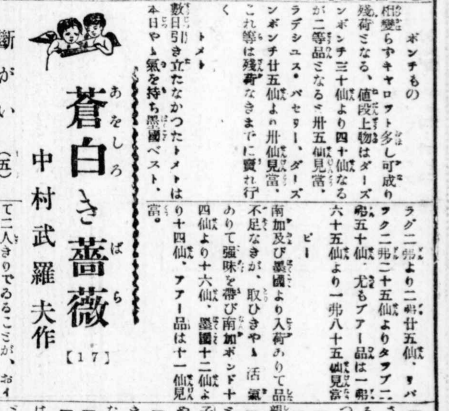 ボンチもの
相變らずキャロツト多し可成り
殘荷となる、値段上物はダーズ
ンボンチ三十仙より四十仙なる
が二等品となると卅五仙見當、
ラデシユス・パセリー、ダーズ
ンボンチ廿五仙より卅仙見當、
これ等は殘荷なきまでに賣れ行
く
トメト
數日引き立たなかつたトメトは
本日やゝ氣を持ち墨國ベスト、
ラグ二弗より二弗廿五仙、リバ
二弗二十五仙よりタツプ二
弗五十仙、尤もプアー品は一弗
六十五仙より一弗八十五仙見當
ピー
南加及び墨國より入荷ありて品
不足なきが、取ひきやゝ活氣
ありて强味を帶び南加ポンド十
四仙より十六仙、墨國十二仙よ
り十四仙、フアー品は十一仙見
當。
蒼白き薔薇
あをしろ ばら
【17】
中村武羅夫作
斷がい (五)
て二人きりでゐることが、おイ